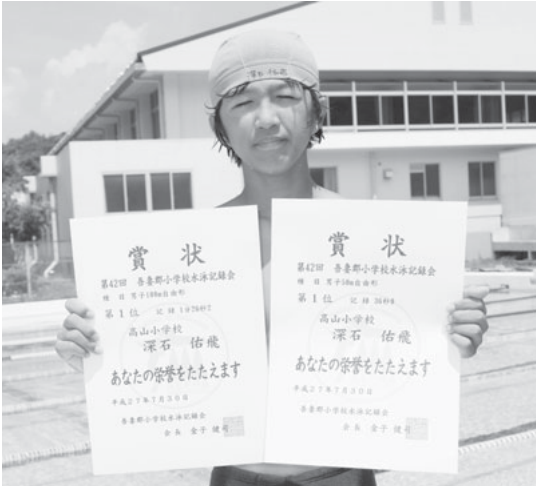 賞状
第42回 吾妻郡小学校水泳記録会
種目 男子100m自由形
第1位 記録 1分20秒7
高山小学校
深石 佑飛
あなたの栄誉をたたえます
平成27年7月30日
吾妻郡小学校水泳記録会
会長 金子 健司
賞状
第42回 吾妻郡小学校水泳記録会
種目 男子50m自由形
第1位 記録 36秒8
高山小学校
深石 佑飛
あなたの栄誉をたたえます
平成27年7月30日
吾妻郡小学校水泳記録会
会長 金子 健司